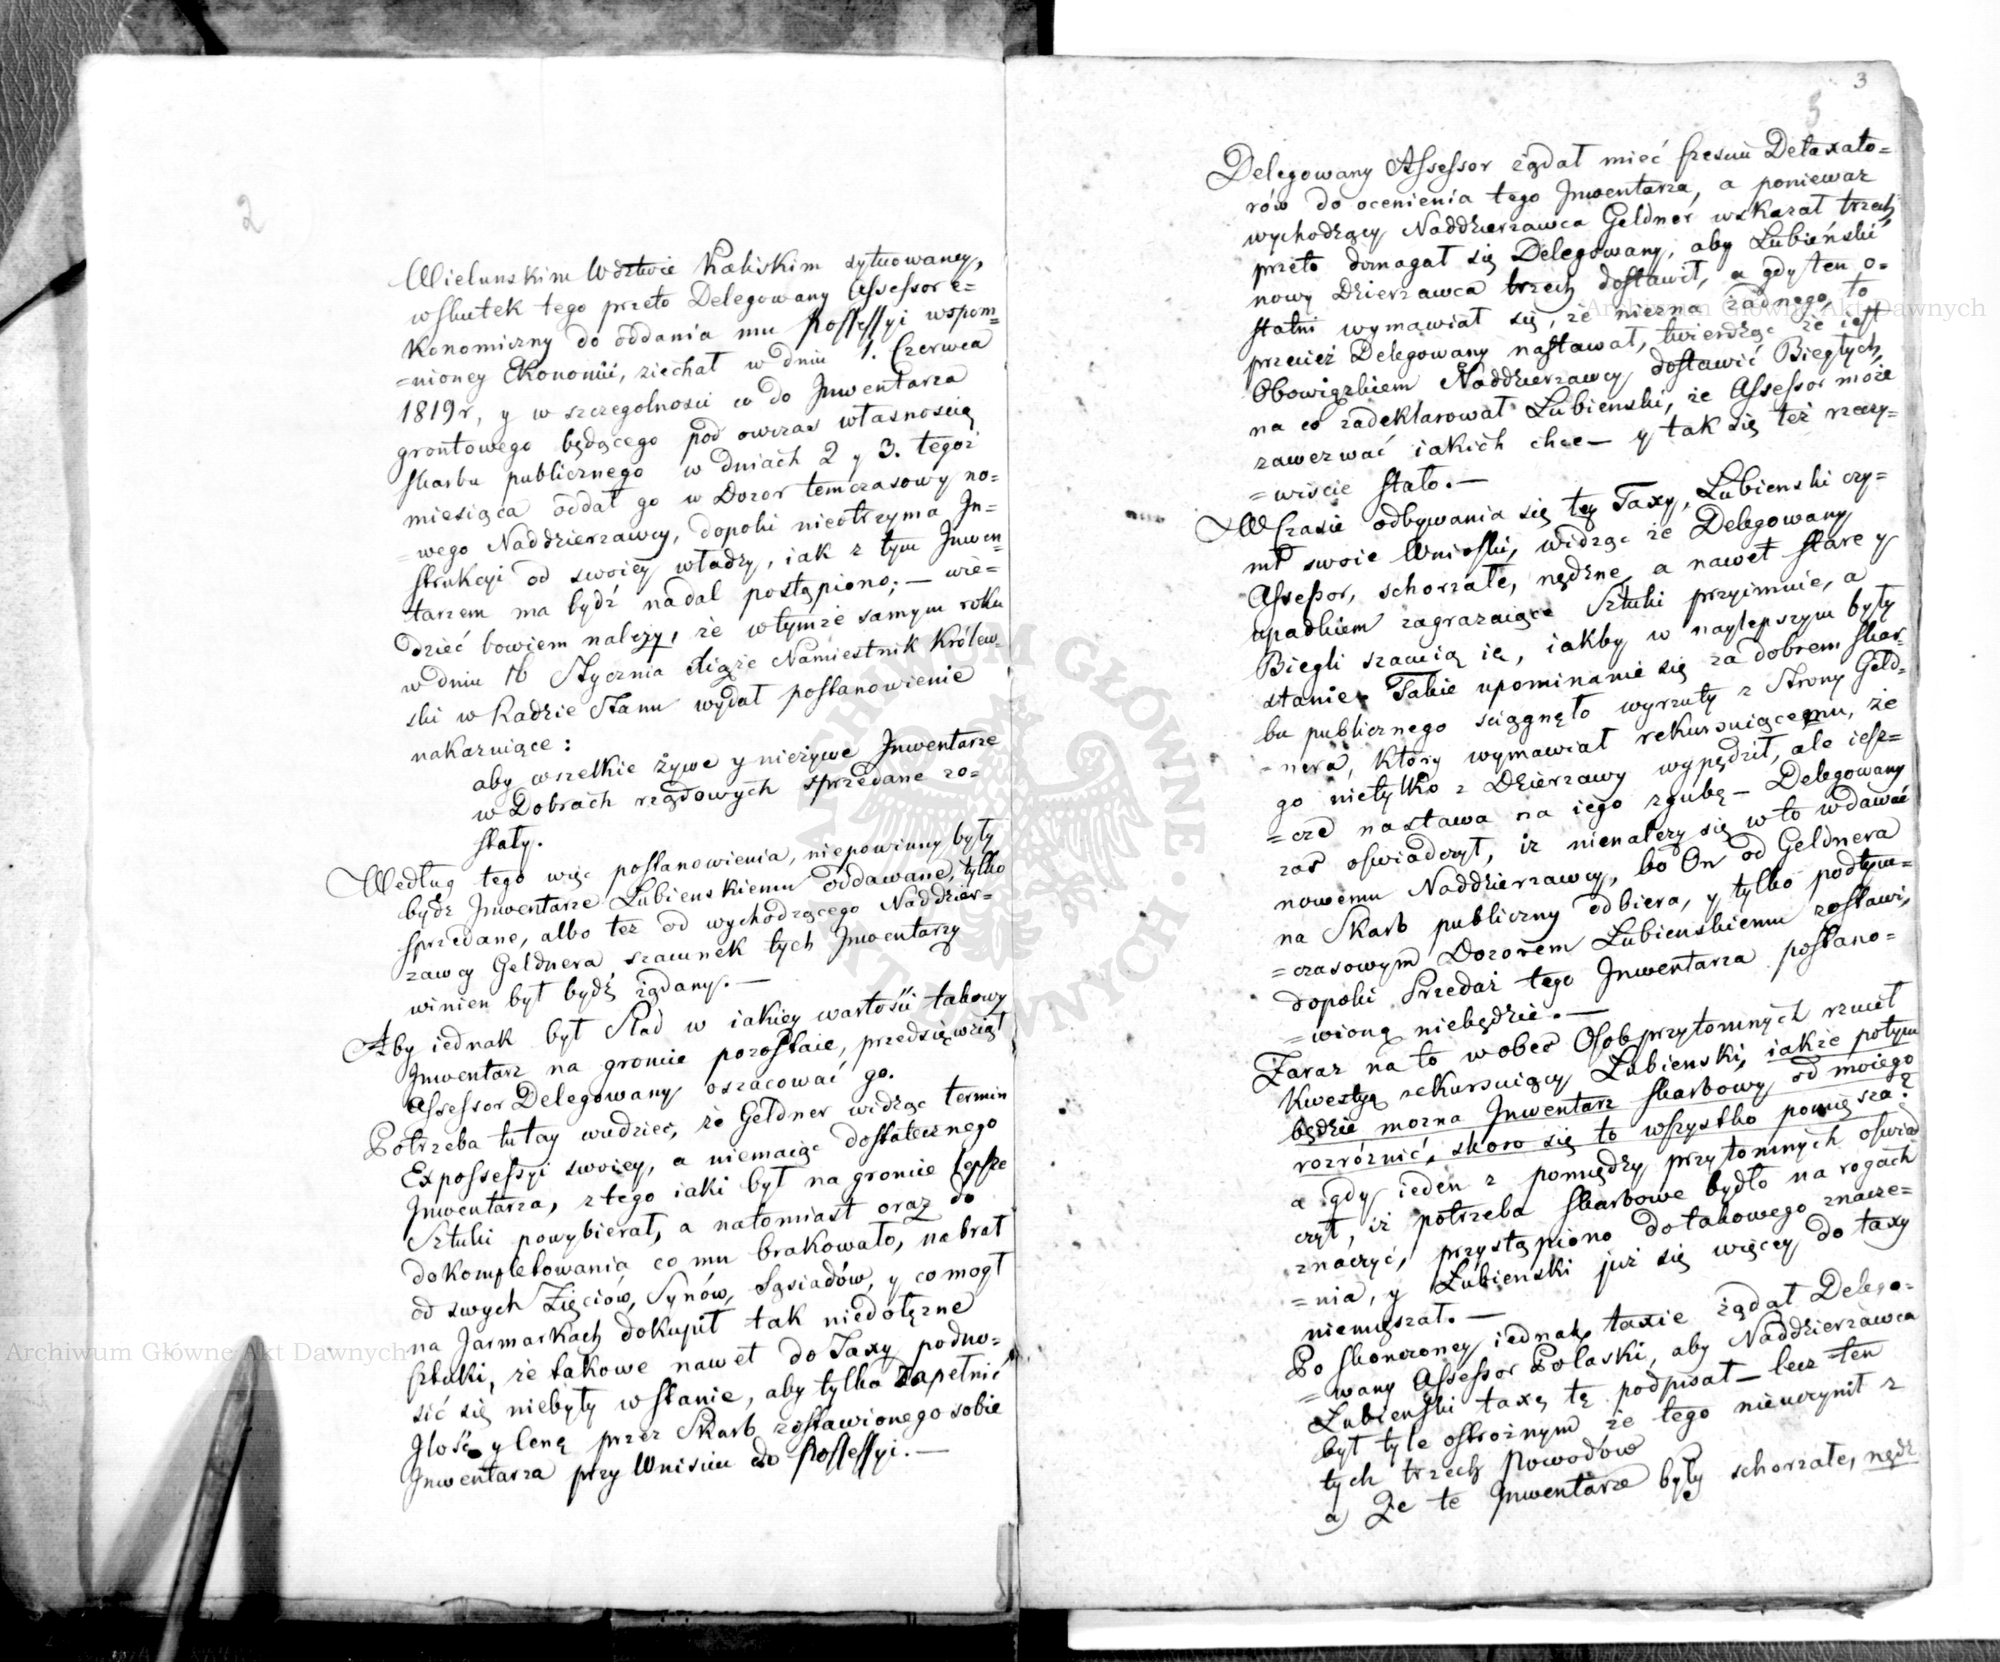 2
Wielunskim Wdztwie Kaliskim sytuowaney,
wskutek tego przeto Delegowany Assessor e=
konomiczny do oddania mu Possessyi wspom=
=nioney Ekonomii, ziechał w dniu 1. Czerwca
1819 r, y w szczegolnosci co do Jnwentarza
grontowego będącego pod owczas własnoscią
skarbu publicznego w dniach 2 y 3. tegoż
miesiąca oddał go w Dozor temczasowy no=
=wego Naddzierzawcy, dopoki nieotrzyma Jn=
strukcyi od swoiey władzy, iak z tym Jnwen
tarzem ma bydź nadal postąpiono; — wie=
dzieć bowiem należy, że w tymże samym roku
w dniu 16 Stycznia Xiąże Namiestnik Królew=
ski w Radzie Stanu wydał postanowienie
nakazuiące:
aby wszelkie żywe y nieżywe Jnwentarze
w Dobrach rządowych sprzedane zo=
stały.
Według tego więc postanowienia, niepowinny były
bydz Jnwentarze Lubienskiemu oddawane, tylko
sprzedane, albo też od wychodzącego Naddzier=
zawcy Geldnera szacunek tych Jnwentarzy
winien był bydź żądany. —
Aby iednak był Slad w iakiey wartości takowy
Jnwentarz na groncie pozostaie, przedsięwziął
Assessor Delegowany oszacować go.
Potrzeba tutay wiedziec, że Geldner widząc termin
Expossessyi swoiey, a niemaiąc dostatecznego
Jnwentarza, z tego iaki był na groncie lepsze
Sztuki powybierał, a natomiast oraz do
dokompletowania co mu brakowało, nabrał
od swych Zięciów, Synów, Sąsiadów, y co mogł
na Jarmarkach dokupił tak niedołęzne
sztuki, że takowe nawet do Taxy podno=
sić się niebyły w stanie, aby tylko zapełnić
Jlość y cenę przez Skarb zostawionego sobie
Jnwentarza przy Wnisciu do Possessyi. —
3
Delegowany Assessor żądał mieć sześciu Detaxato=
rów do ocenienia tego Jnwentarza, a poniewaz
wychodzący Naddzierzawca Geldner wskazał trzech
przeto domagał się Delegowany, aby Lubieński
nowy Dzierzawca trzech dostawił, a gdy ten o=
statni wymawiał się, że niezna żadnego, to
przecież Delegowany nastawał, twierdząc że iest
Obowiązkiem Naddzierzawcy dostawić Biegłych,
na co zadeklarował Lubienski, że Assessor może
zawezwać iakich chce — y tak się też rzeczy=
=wiscie stało. —
W Czasie odbywania się tey Taxy, Lubienski czy=
nił swoie Wnioski, widząc że Delegowany
Assessor, schorzałe, nędzne, a nawet stare y
upadkiem zagrazaiące Sztuki przyimuie, a
Biegli szacuią ie, iakby w naylepszym były
stanie. Takie upominanie się za dobrem skar=
bu publicznego sciągnęło wyrzuty z Strony Geld=
=nera, który wymawiał rekursuiącemu, że
go nietylko z Dzierzawy wypędził, ale iesz=
=cze nastawa na iego zgubę — Delegowany
zaś oswiadczył, iż nienalezy się w to wdawać
nowemu Naddzierzawcy, bo On od Geldnera
na Skarb publiczny odbiera, y tylko podtym=
=czasowym Dozorem Lubienskiemu zostawi,
dopoki Przedaż tego Jnwentarza postano=
=wioną niebędzie. —
Zaraz na to wobec Osob przytomnych rzucił
Kwestyą rekursuiący Lubienski, iakże potym
będzie mozna Jnwentarz skarbowy od moiego
rozróżnić, skoro się to wszystko pomięsza?
a gdy ieden z pomiędzy przytomnych oświad
czył, iż potrzeba skarbowe bydło na rogach
znaczyć, przystąpiono do takowego znacze=
=nia, y Lubienski już się więcey do taxy
niemięszał. —
Po skonczoney iednak taxie żądał Delego=
=wany Assessor Polaski, aby Naddzierzawca
Lubieński taxę tę podpisał — lecz ten
był tyle ostrożnym że tego nieuczynił z
tych trzech Powodów
a) Że te Jnwentarze były schorzałe, nędz